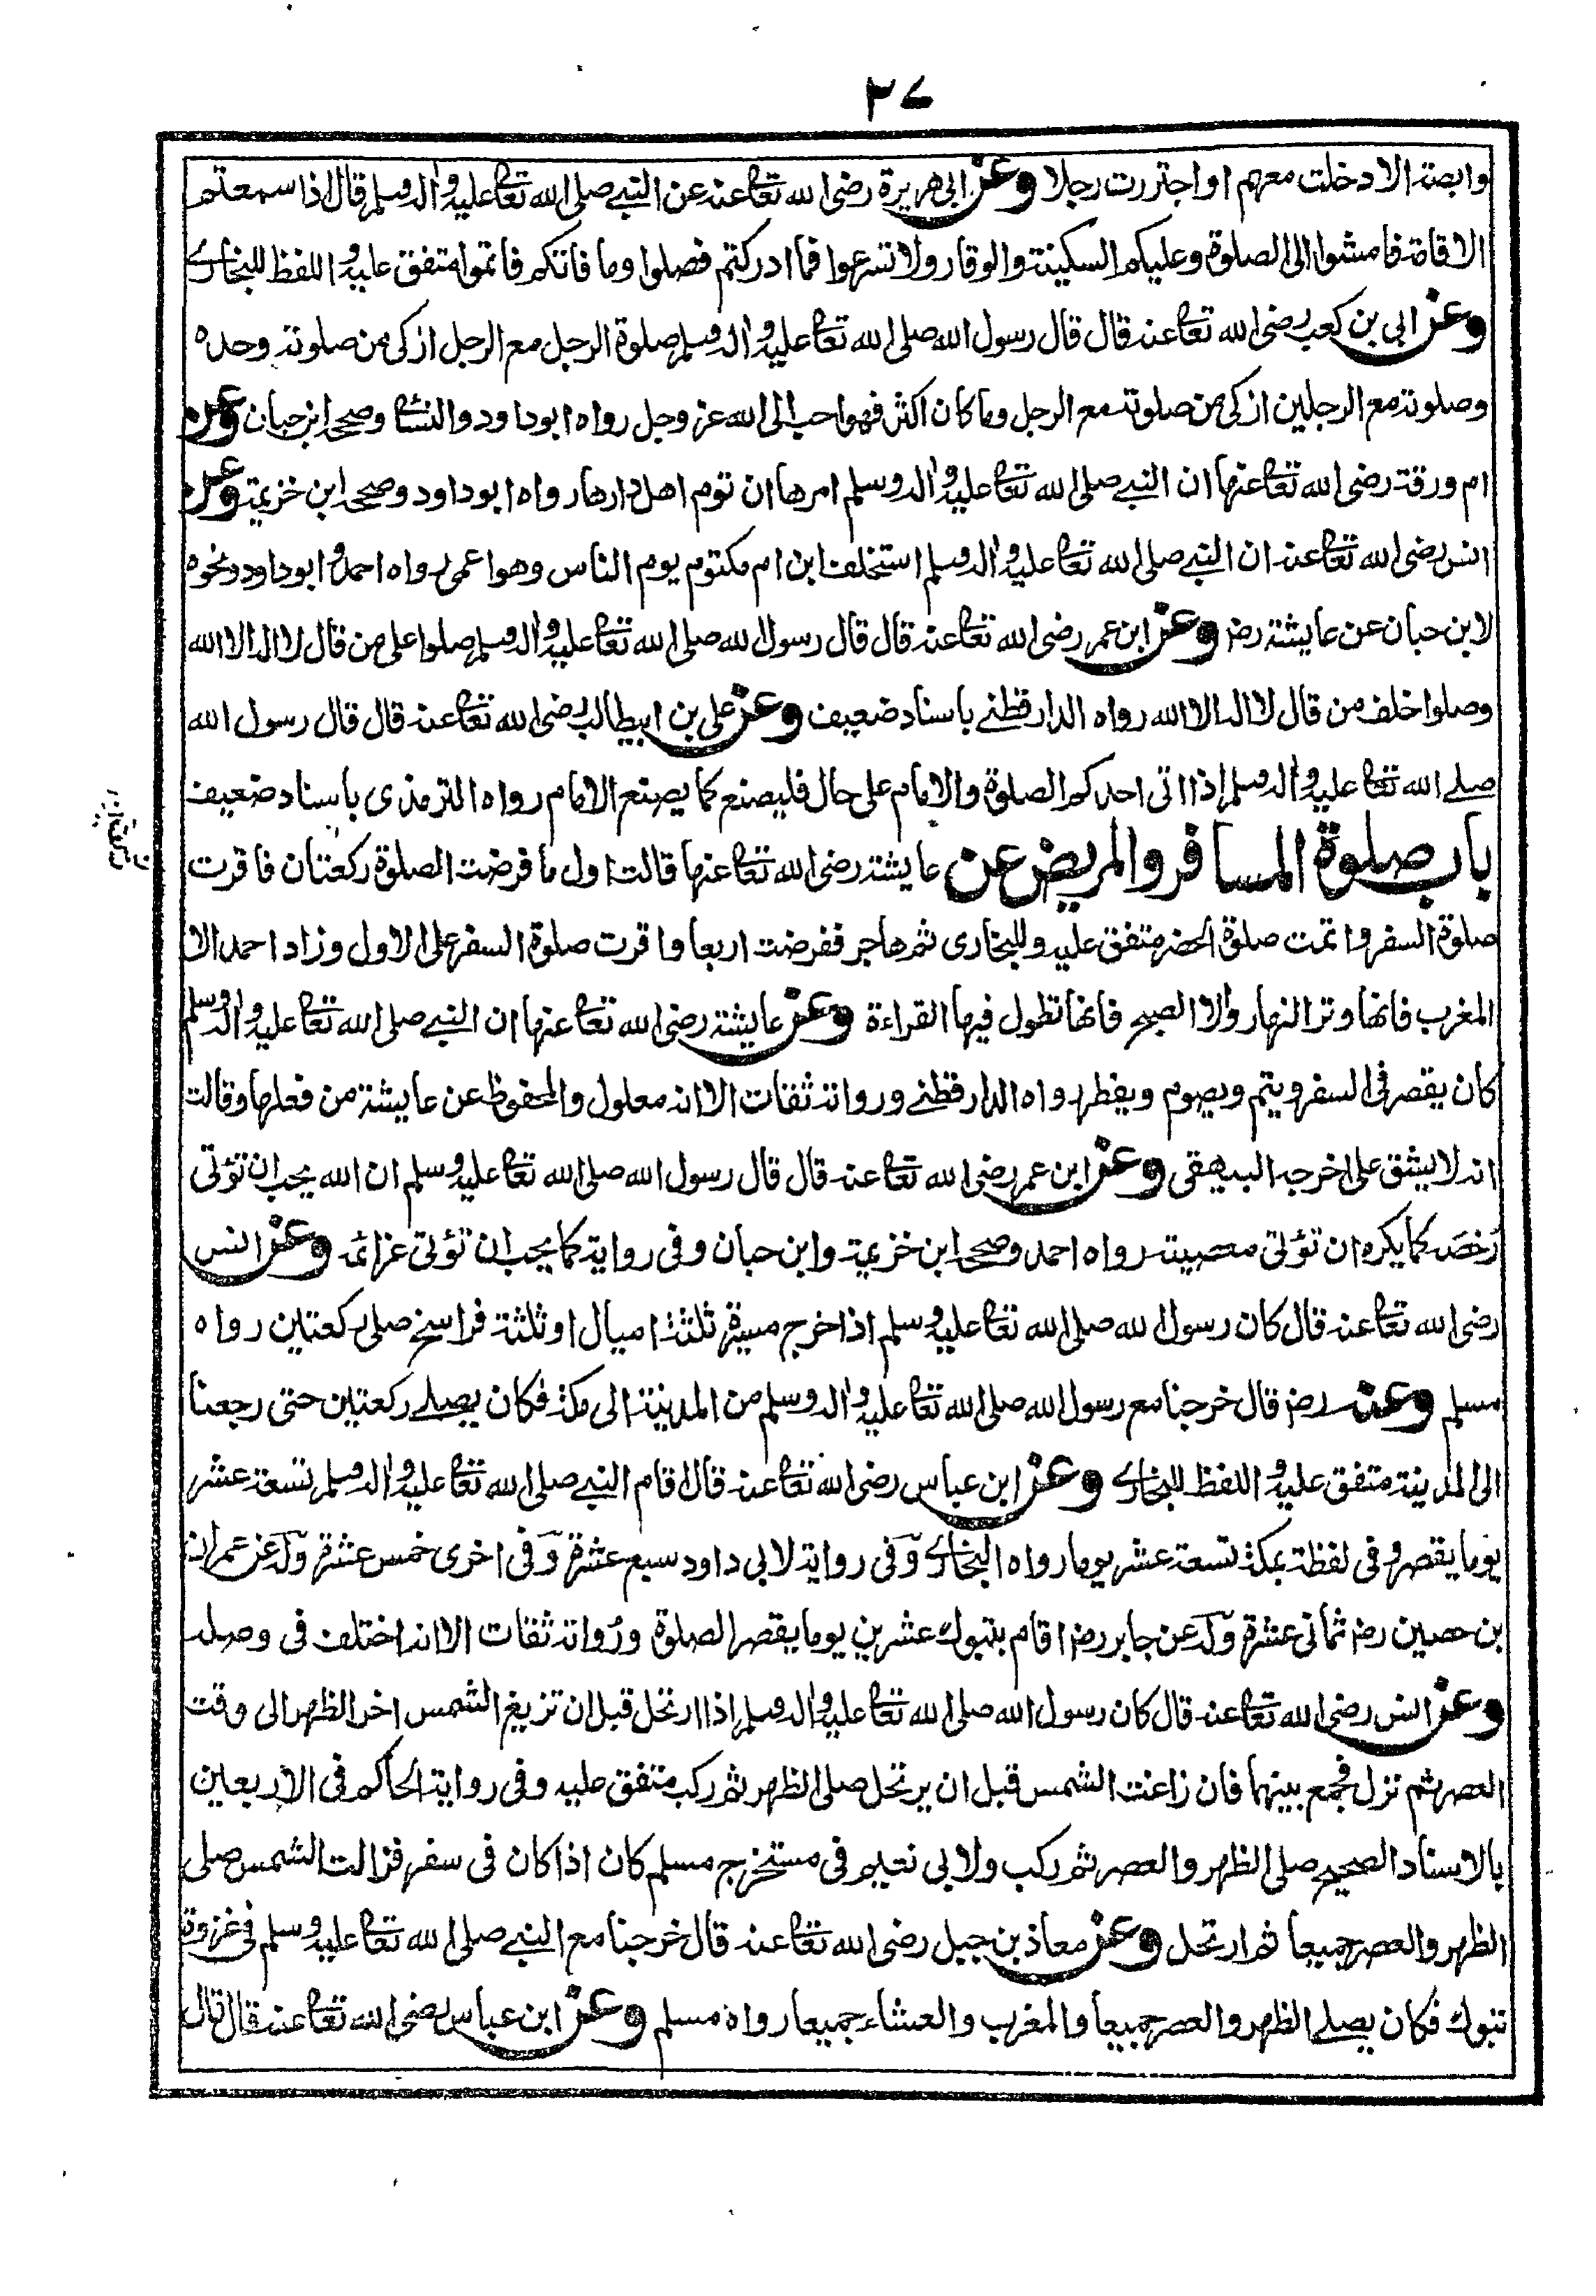 ٣٧
وابصة الا دخلت معهم او اجتررت رجلا وعن ابى هريرة رضى الله تعالى عنه عن النبے صلى الله تعالى عليه واله وسلم قال اذا سمعتم
الاقامة فامشوا الى الصلوة وعليكم السكينة والوقار ولا تسرعوا فما ادركتم فصلوا وما فاتكم فاتموا متفق عليه واللفظ للبخارے
وعن ابى بن كعب رضى الله تعالى عنه قال قال رسول الله صلى الله تعالى عليه واله وسلم صلوة الرجل مع الرجل ازكى من صلوته وحده
وصلوته مع الرجلين ازكى من صلوته مع الرجل وما كان اكثر فهو احب الى الله عز وجل رواه ابو داود والنسائى وصححه ابن حبان وعن
ام ورقة رضى الله تعالى عنها ان النبے صلى الله تعالى عليه واله وسلم امرها ان تؤم اهل دارها رواه ابو داود وصححه ابن خزيمة وعن
انس رضى الله تعالى عنه ان النبے صلى الله تعالى عليه واله وسلم استخلف ابن ام مكتوم يوم الناس وهو اعمى رواه احمد وابو داود ونحوه
لابن حبان عن عايشة رضـ وعن ابن عمر رضى الله تعالى عنه قال قال رسول الله صلى الله تعالى عليه واله وسلم صلوا على من قال لا اله الا الله
وصلوا خلف من قال لا اله الا الله رواه الدارقطنے باسناد ضعيف وعن على بن ابيطالب رضى الله تعالى عنه قال قال رسول الله
صلے الله تعالى عليه واله وسلم اذا اتى احدكم الصلوة والامام على حال فليصنع كما يصنع الامام رواه الترمذى باسناد ضعيف
باب صلوة المسافر والمريض عن عايشة رضى الله تعالى عنها قالت اول ما فرضت الصلوة ركعتان فاقرت
صلوة السفر واتمت صلوة الحضر متفق عليه وللبخارى ثم هاجر ففرضت اربعا واقرت صلوة السفر على الاول وزاد احمد الا
المغرب فانها وتر النهار والا الصبح فانها تطول فيها القراءة وعن عايشة رضى الله تعالى عنها ان النبے صلى الله تعالى عليه واله وسلم
كان يقصر فى السفر ويتم ويصوم ويفطر رواه الدارقطنے ورواته ثقات الا انه معلول والمحفوظ عن عايشة من فعلها وقالت
انه لا يشق على اخرجه البيهقى وعن ابن عمر رضى الله تعالى عنه قال قال رسول الله صلى الله تعالى عليه وسلم ان الله يحب ان تؤتى
رُخصَه كما يكره ان تؤتى معصيته رواه احمد وصححه ابن خزيمة وابن حبان وفى رواية كما يحب ان تؤتى عزائمه وعن انس
رضى الله تعالى عنه قال كان رسول الله صلى الله تعالى عليه وسلم اذا خرج مسيرة ثلثة اميال او ثلثة فراسخ صلى ركعتين رواه
مسلم وعنه رضـ قال خرجنا مع رسول الله صلى الله تعالى عليه واله وسلم من المدينة الى مكة فكان يصلے ركعتين حتى رجعنا
الى المدينة متفق عليه واللفظ للبخارے وعن ابن عباس رضى الله تعالى عنه قال اقام النبے صلى الله تعالى عليه واله وسلم تسعة عشر
يوما يقصر وفى لفظة بمكة تسعة عشر يوما رواه البخارے وفى رواية لابى داود سبع عشرة وفى اخرى خمس عشرة وله عن عمران
بن حصين رضـ ثمانى عشرة وله عن جابر رضـ اقام بتبوك عشرين يوما يقصر الصلوة ورُواته ثقات الا انه اختلف فى وصله
وعن انس رضى الله تعالى عنه قال كان رسول الله صلى الله تعالى عليه واله وسلم اذا ارتحل قبل ان تزيغ الشمس اخر الظهر الى وقت
العصر ثم نزل فجمع بينهما فان زاغت الشمس قبل ان يرتحل صلى الظهر ثم ركب متفق عليه وفى رواية الحاكم فى الاربعين
بالاسناد الصحيح صلى الظهر والعصر ثم ركب ولابى نعيم فى مستخرج مسلم كان اذا كان فى سفر فزالت الشمس صلى
الظهر والعصر جميعا ثم ارتحل وعن معاذ بن جبل رضى الله تعالى عنه قال خرجنا مع النبے صلى الله تعالى عليه وسلم فى غزوة
تبوك فكان يصلے الظهر والعصر جميعا والمغرب والعشاء جميعا رواه مسلم وعن ابن عباس رضى الله تعالى عنه قال قال